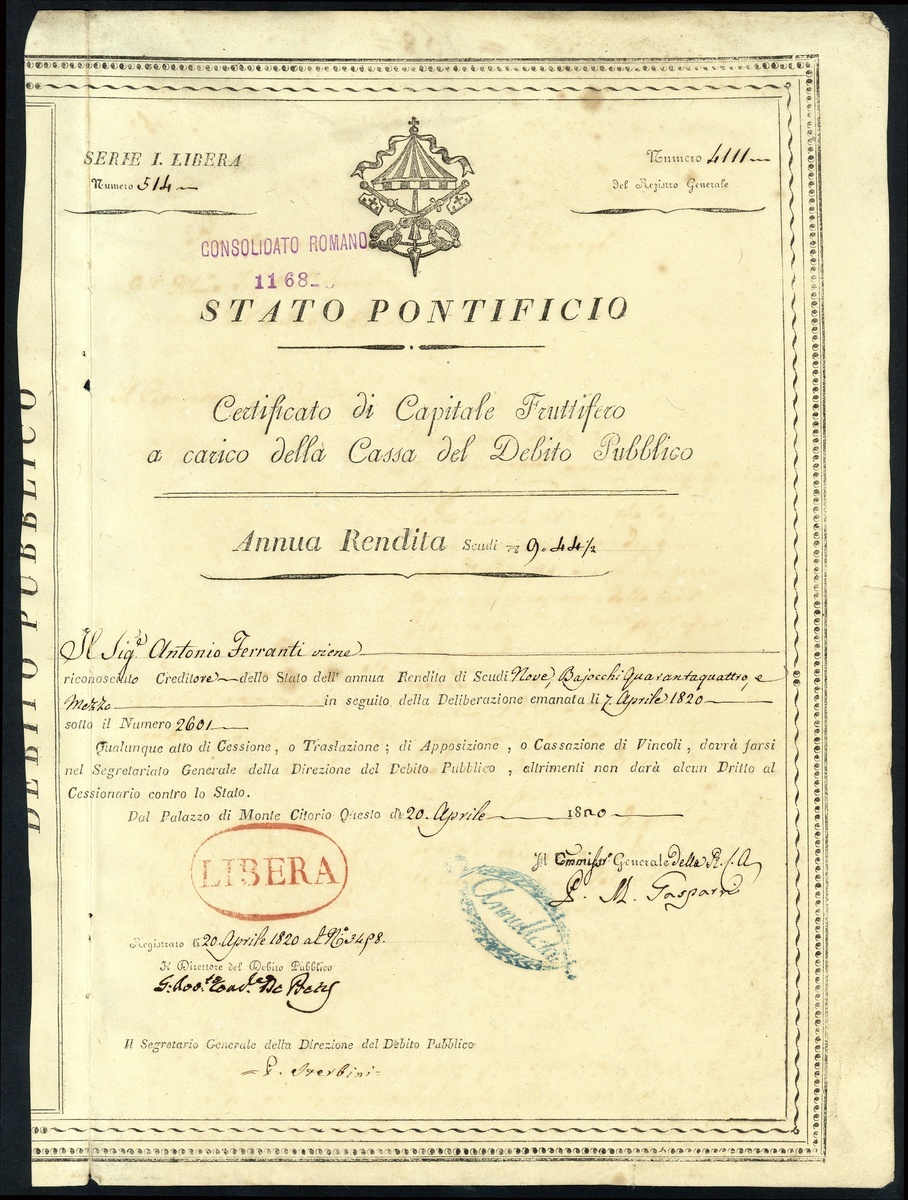 SERIE I. LIBERA
Numero 514
Numero 4111
del Registro Generale
CONSOLIDATO ROMANO
1168
STATO PONTIFICIO
Certificato di Capitale Fruttifero
a carico della Cassa del Debito Pubblico
Annua Rendita Scudi 9.44½
DEBITO PUBBLICO
Il Sig.e Antonio Ferranti viene
riconosciuto Creditore dello Stato dell'annua Rendita di Scudi Nove Bajocchi Quarantaquattro, e
Mezzo in seguito della Deliberazione emanata li 7. Aprile 1820
sotto il Numero 2601
Qualunque atto di Cessione, o Traslazione; di Apposizione, o Cassazione di Vincoli, dovrà farsi
nel Segretariato Generale della Direzione del Debito Pubblico, altrimenti non darà alcun Dritto al
Cessionario contro lo Stato.
Dal Palazzo di Monte Citorio Questo dì 20. Aprile 1820
LIBERA
Il Commissr Generale della R. C. A.
P. M. Gasparri
Annullato
Registrato li 20. Aprile 1820 al N.o 3498.
Il Direttore del Debito Pubblico
Il Segretario Generale della Direzione del Debito Pubblico
P. Sterbini